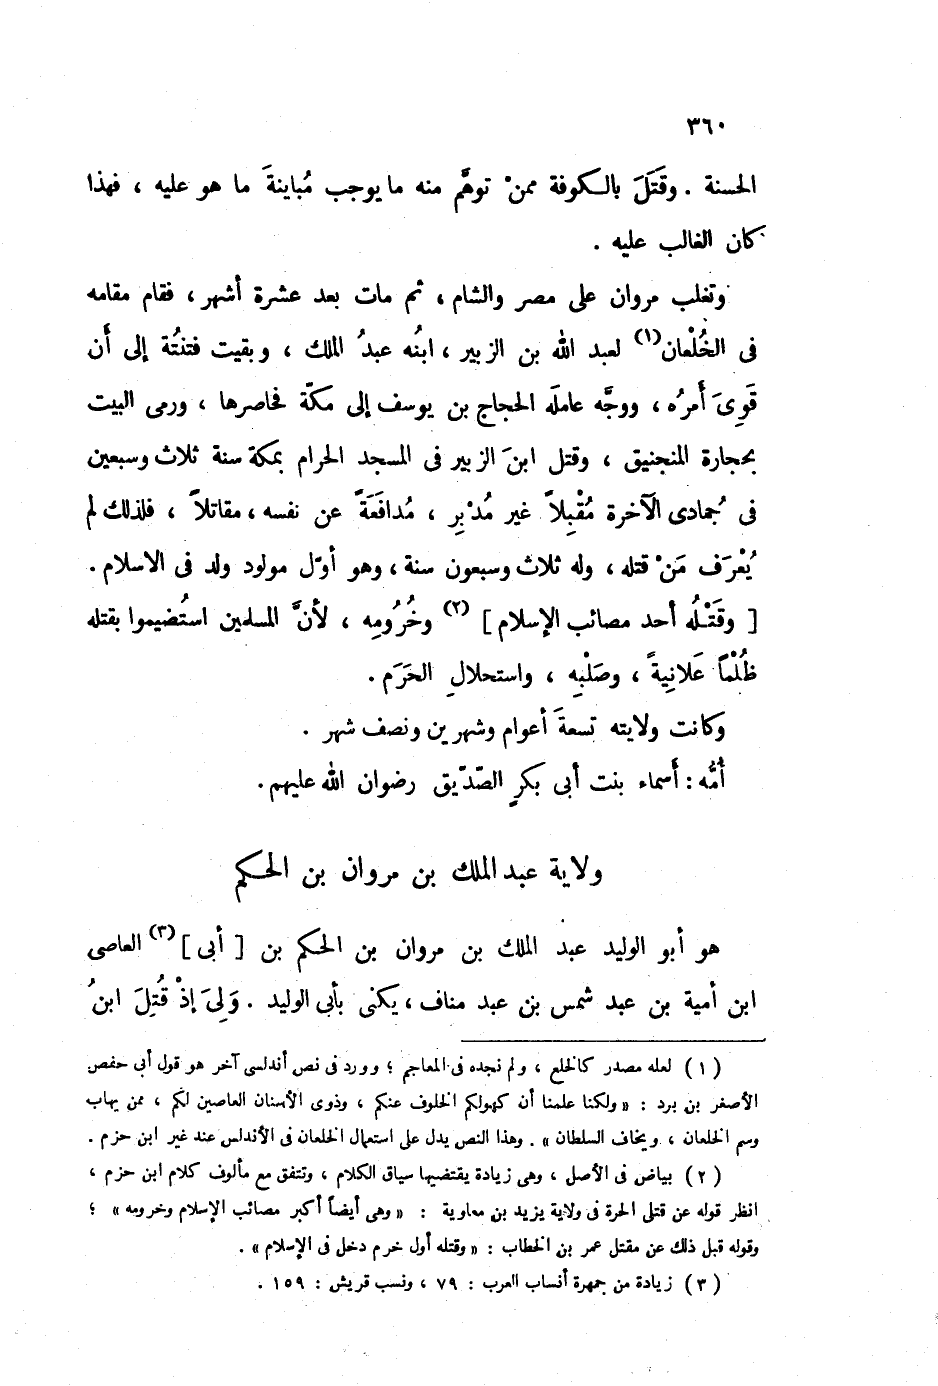 ٣٦٠
الحسنة . وقَتَلَ بالكوفة ممنْ توهَّم منه ما يوجب مُباينةَ ما هو عليه ، فهذا
كان الغالب عليه .
وتغلب مروان على مصر والشام ، ثم مات بعد عشرة أشهر ، فقام مقامه
فى الخُلْعان(١) لعبد الله بن الزبير ، ابنُه عبدُ الملك ، وبقيت فتنتُه إلى أن
قَوِىَ أَمرُه ، ووجَّه عاملَه الحجاج بن يوسف إلى مكّة فحاصرها ، ورمى البيت
بحجارة المنجنيق ، وقتل ابنَ الزبير فى المسجد الحرام بمكة سنة ثلاث وسبعين
فى جُمادى الآخرة مُقْبِلاً غير مُدْبِرٍ ، مُدافَعَةً عن نفسه ، مقاتلاً ، فلذلك لم
يُعْرَف مَنْ قتله ، وله ثلاث وسبعون سنة ، وهو أوّل مولود ولد فى الاسلام .
[ وقَتْلُه أحد مصائب الإسلام ] (٢) وخُرُومِه ، لأنَّ المسلمين استُضيموا بقتله
ظُلْماً عَلانِيةً ، وصَلْبِه ، واستحلالِ الحَرَم .
وكانت ولايته تسعةَ أعوام وشهرين ونصف شهر .
أمُّه : أَسماء بنت أبى بكرٍ الصّدّيق رضوان الله عليهم .
ولاية عبد الملك بن مروان بن الحكم
هو أبو الوليد عبد الملك بن مروان بن الحكم بن [ أبى ] (٣) العاصى
ابن أمية بن عبد شمس بن عبد مناف ، يكنى بأبى الوليد . وَلِىَ إذْ قُتِلَ ابنُ
( ١ ) لعله مصدر كالخلع ، ولم نجده فى المعاجم ؛ وورد فى نص أندلسى آخر هو قول أبى حفص
الأصغر بن برد : « ولكنا علمنا أن كهولكم الخلوف عنكم ، وذوى الأسنان العاصين لكم ، ممن يهاب
وسم الخلعان ، ويخاف السلطان » . وهذا النص يدل على استعمال الخلعان فى الأندلس عند غير ابن حزم .
( ٢ ) بياض فى الأصل ، وهى زيادة يقتضيها سياق الكلام ، وتتفق مع مألوف كلام ابن حزم ،
انظر قوله عن قتلى الحرة فى ولاية يزيد بن معاوية : « وهى أيضاً أكبر مصائب الإسلام وخرومه » ؛
وقوله قبل ذلك عن مقتل عمر بن الخطاب : « وقتله أول خرم دخل فى الإسلام » .
( ٣ ) زيادة من جمهرة أنساب العرب : ٧٩ ، ونسب قريش : ١٥٩ .